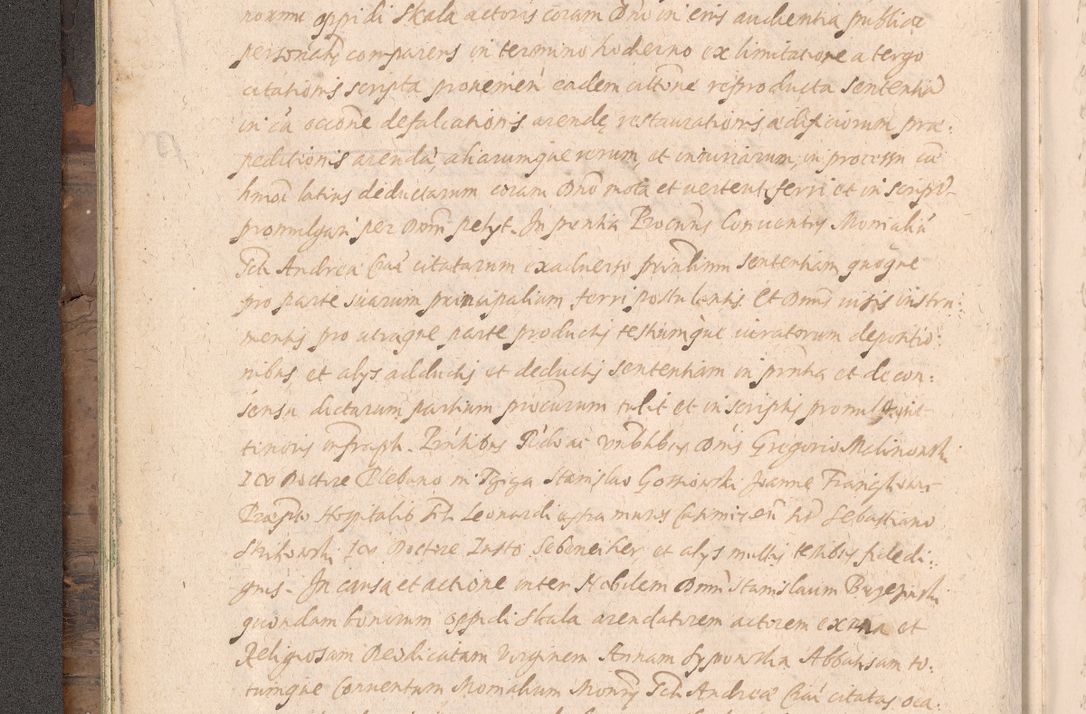 norum oppidi Skala actoris coram Dno in eius audientia publica
personali comparens in termino hodierno ex limitatione a tergo
citationis scripta provenien eadem citatione reproducta sententia
in ca occone defalcationis arendę restaurationis ædificiorum præ:
peditionis arendæ, aliarumque rerum et iniuriarum, in processu cæ
hmoi latius deductarum coram Dno mota et verten ferri et in script
promulgari per Dom petyt. In prentia Procuris Conventus Monialiũ
Scti Andreæ Crac citatarum ex adverso sententiam quoque
pro parte suarum principalium ferri postulantis Et Dnus visis instru:
mentis pro utraque parte productis testiumque iuratorum depositio:
nibus et alys adductis et deductis sententiam in prntia et de con:
sensu dictarum partium procurum tulit et in scriptis promulgavit
tenoris infrascpt. Prntibus Rndo ac Dnis Gregorio Malinowski
ICo Doctore Plebano in Stanislao Gosniowski Joanne
Præpto Hospitalis Scti Leonardi extra muros Casimirien Sebastiano
ICo Doctore Iusto et alys multis testibus fidedi:
gnis. In causa et actione inter Nobilem Dnum Stanislaum
quondam bonorum oppidi Skala arendatorem actorem ex una et
Religiosam Deo dicatam Virginem Annam Abbatissam to:
tumque Conventum Monialium Monry Scti Andreæ Crac citatas oca: